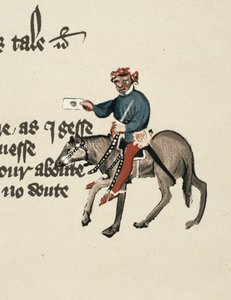 s tale
ge, as I gesse
nesse
our aboute
no doute